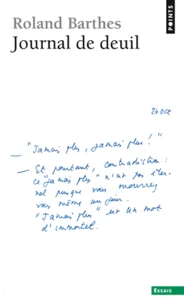 Roland Barthes
Journal de deuil
POINTS
27 oct
— "Jamais plus, jamais plus !"
— Et pourtant, contradiction :
ce "jamais plus" n'est pas éter-
nel puisque vous mourrez
vous-même un jour.
"Jamais plus" est un mot
d'immortel.
ESSAIS